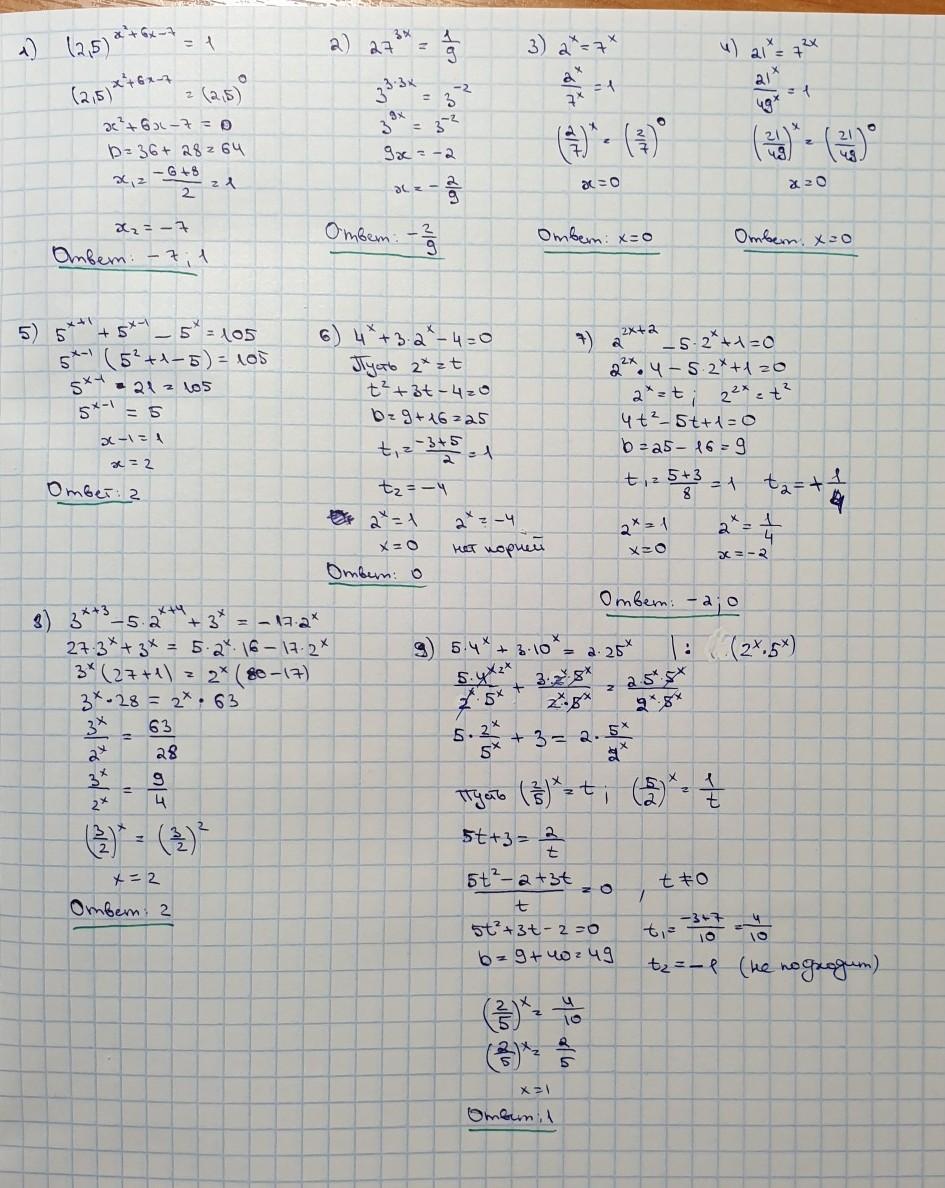 1) (2,5)^{x²+6x-7} = 1
(2,5)^{x²+6x-7} = (2,5)^0
x²+6x-7 = 0
D=36+28=64
x₁ = \frac{-6+8}{2} = 1
x₂ = -7
Ответ: -7; 1
2) 27^{3x} = \frac{1}{9}
3^{3·3x} = 3^{-2}
3^{9x} = 3^{-2}
9x = -2
x = -\frac{2}{9}
Ответ: -\frac{2}{9}
3) 2^x = 7^x
\frac{2^x}{7^x} = 1
(\frac{2}{7})^x = (\frac{2}{7})^0
x=0
Ответ: x=0
4) 21^x = 7^{2x}
\frac{21^x}{49^x} = 1
(\frac{21}{49})^x = (\frac{21}{49})^0
x=0
Ответ. x=0
5) 5^{x+1} + 5^{x-1} - 5^x = 105
5^{x-1} (5²+1-5) = 105
5^{x-1} · 21 = 105
5^{x-1} = 5
x-1=1
x=2
Ответ: 2
6) 4^x + 3·2^x - 4 = 0
Пусть 2^x = t
t² + 3t - 4 = 0
D = 9+16 = 25
t₁ = \frac{-3+5}{2} = 1
t₂ = -4
2^x = 1 2^x = -4
x=0 нет корней
Ответ: 0
7) 2^{2x+2} - 5·2^x + 1 = 0
2^{2x}·4 - 5·2^x + 1 = 0
2^x = t; 2^{2x} = t²
4t² - 5t + 1 = 0
D = 25 - 16 = 9
t₁ = \frac{5+3}{8} = 1 t₂ = +\frac{1}{4}
2^x = 1 2^x = \frac{1}{4}
x=0 x=-2
Ответ: -2; 0
8) 3^{x+3} - 5·2^{x+4} + 3^x = -17·2^x
27·3^x + 3^x = 5·2^x·16 - 17·2^x
3^x (27+1) = 2^x (80-17)
3^x·28 = 2^x·63
\frac{3^x}{2^x} = \frac{63}{28}
\frac{3^x}{2^x} = \frac{9}{4}
(\frac{3}{2})^x = (\frac{3}{2})^2
x=2
Ответ: 2
9) 5·4^x + 3·10^x = 2·25^x |: (2^x·5^x)
\frac{5·4^x}{2^x·5^x}^{2^x} + \frac{3·2^x·5^x}{2^x·5^x} = \frac{2·5^x·5^x}{2^x·5^x}
5·\frac{2^x}{5^x} + 3 = 2·\frac{5^x}{2^x}
Пусть (\frac{2}{5})^x = t; (\frac{5}{2})^x = \frac{1}{t}
5t+3 = \frac{2}{t}
\frac{5t²-2+3t}{t} = 0, t≠0
5t²+3t-2=0 t₁ = \frac{-3+7}{10} = \frac{4}{10}
D = 9+40=49 t₂ = -1 (не подходит)
(\frac{2}{5})^x = \frac{4}{10}
(\frac{2}{5})^x = \frac{2}{5}
x=1
Ответ: 1